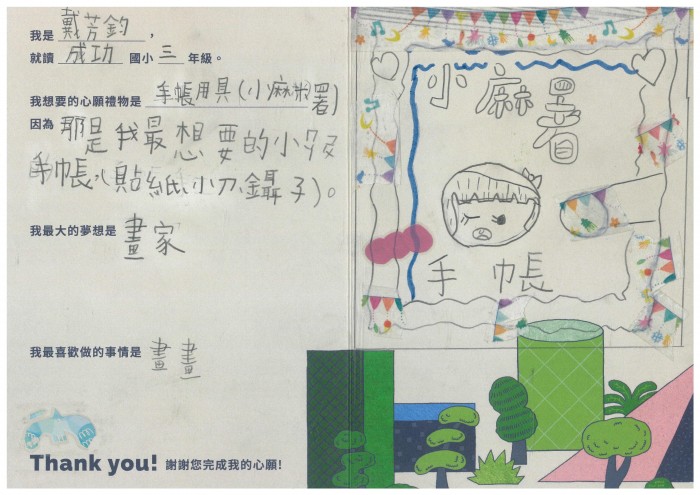 我是 戴芳鈞，
就讀 成功 國小 三 年級。
我想要的心願禮物是 手帳用具(小麻署)
因為 那是我最想要的小
手帳、(貼紙、小刀、鑷子)。
我最大的夢想是 畫家
我最喜歡做的事情是 畫畫
Thank you! 謝謝您完成我的心願!
小麻署
手帳